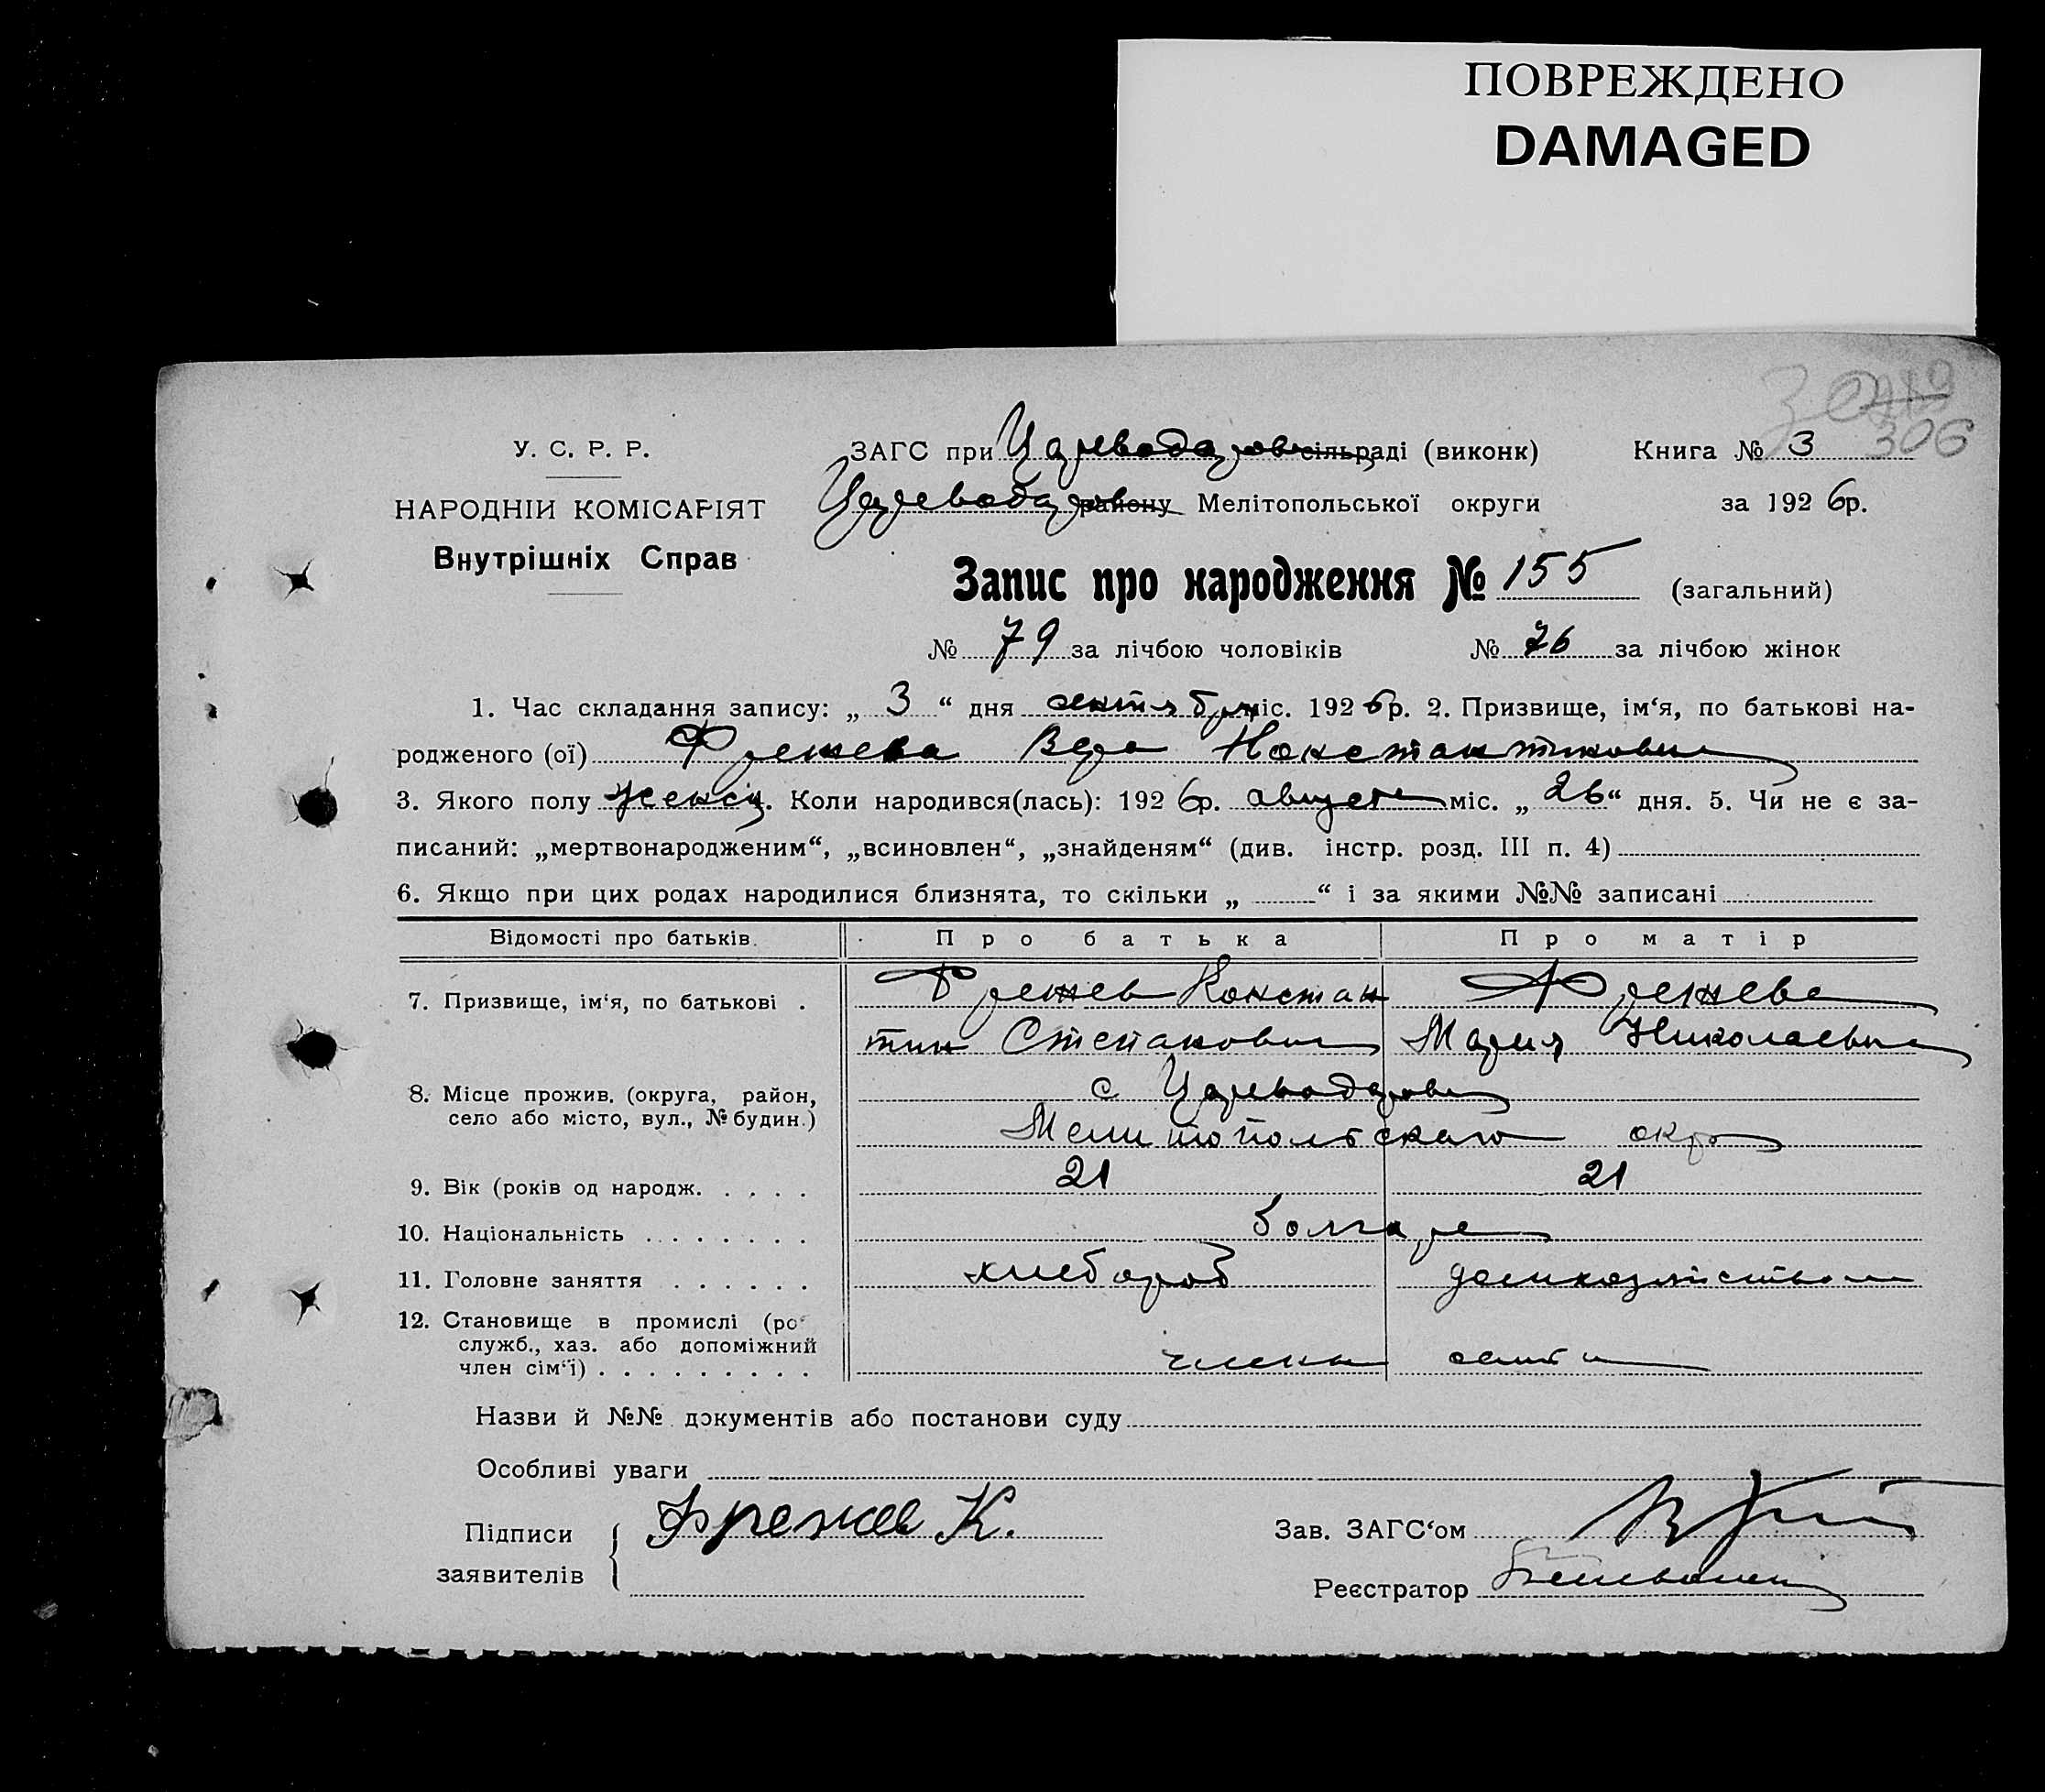 ПОВРЕЖДЕНО
DAMAGED
306
У. С. Р. Р.
ЗАГС при Цареводаровс сільраді (виконк)
Книга № 3
НАРОДНІЙ КОМІСАРІЯТ
Цареводаров району Мелітопольської округи
за 1926р.
Внутрішніх Справ
Запис про народження № 155 (загальний)
№ 79 за лічбою чоловіків № 76 за лічбою жінок
1. Час складання запису: „ 3 “ дня сентября міс. 1926р. 2. Призвище, ім‘я, по батькові на-
родженого (ої) Фрежева Вера Константиновна
3. Якого полу женск. Коли народився(лась): 1926р. августа міс. „ 26 “ дня. 5. Чи не є за-
писаний: „мертвонародженим“, „всиновлен“, „знайденям“ (див. інстр. розд. III п. 4)
6. Якщо при цих родах народилися близнята, то скільки „ “ і за якими №№ записані
Відомості про батьків. Про батька Про матір
7. Призвище, ім‘я, по батькові . Фрежев Констан Фрежева
тин Степанович Мария Николаевна
8. Місце прожив. (округа, район, с Царводаровка
село або місто, вул., № будин.) Мелитопольскаго окр
9. Вік (років од народж. . . . . 21 21
10. Національність . . . . . . . болгаре
11. Головне заняття . . . . . . хлебороб
12. Становище в промислі (ро
служб., хаз. або допоміжний
член сім‘ї) . . . . . . . . . члены семьи
Назви й №№ документів або постанови суду
Особливі уваги
Підписи Фрежев К.
заявителів
Зав. ЗАГС‘ом
Реєстратор